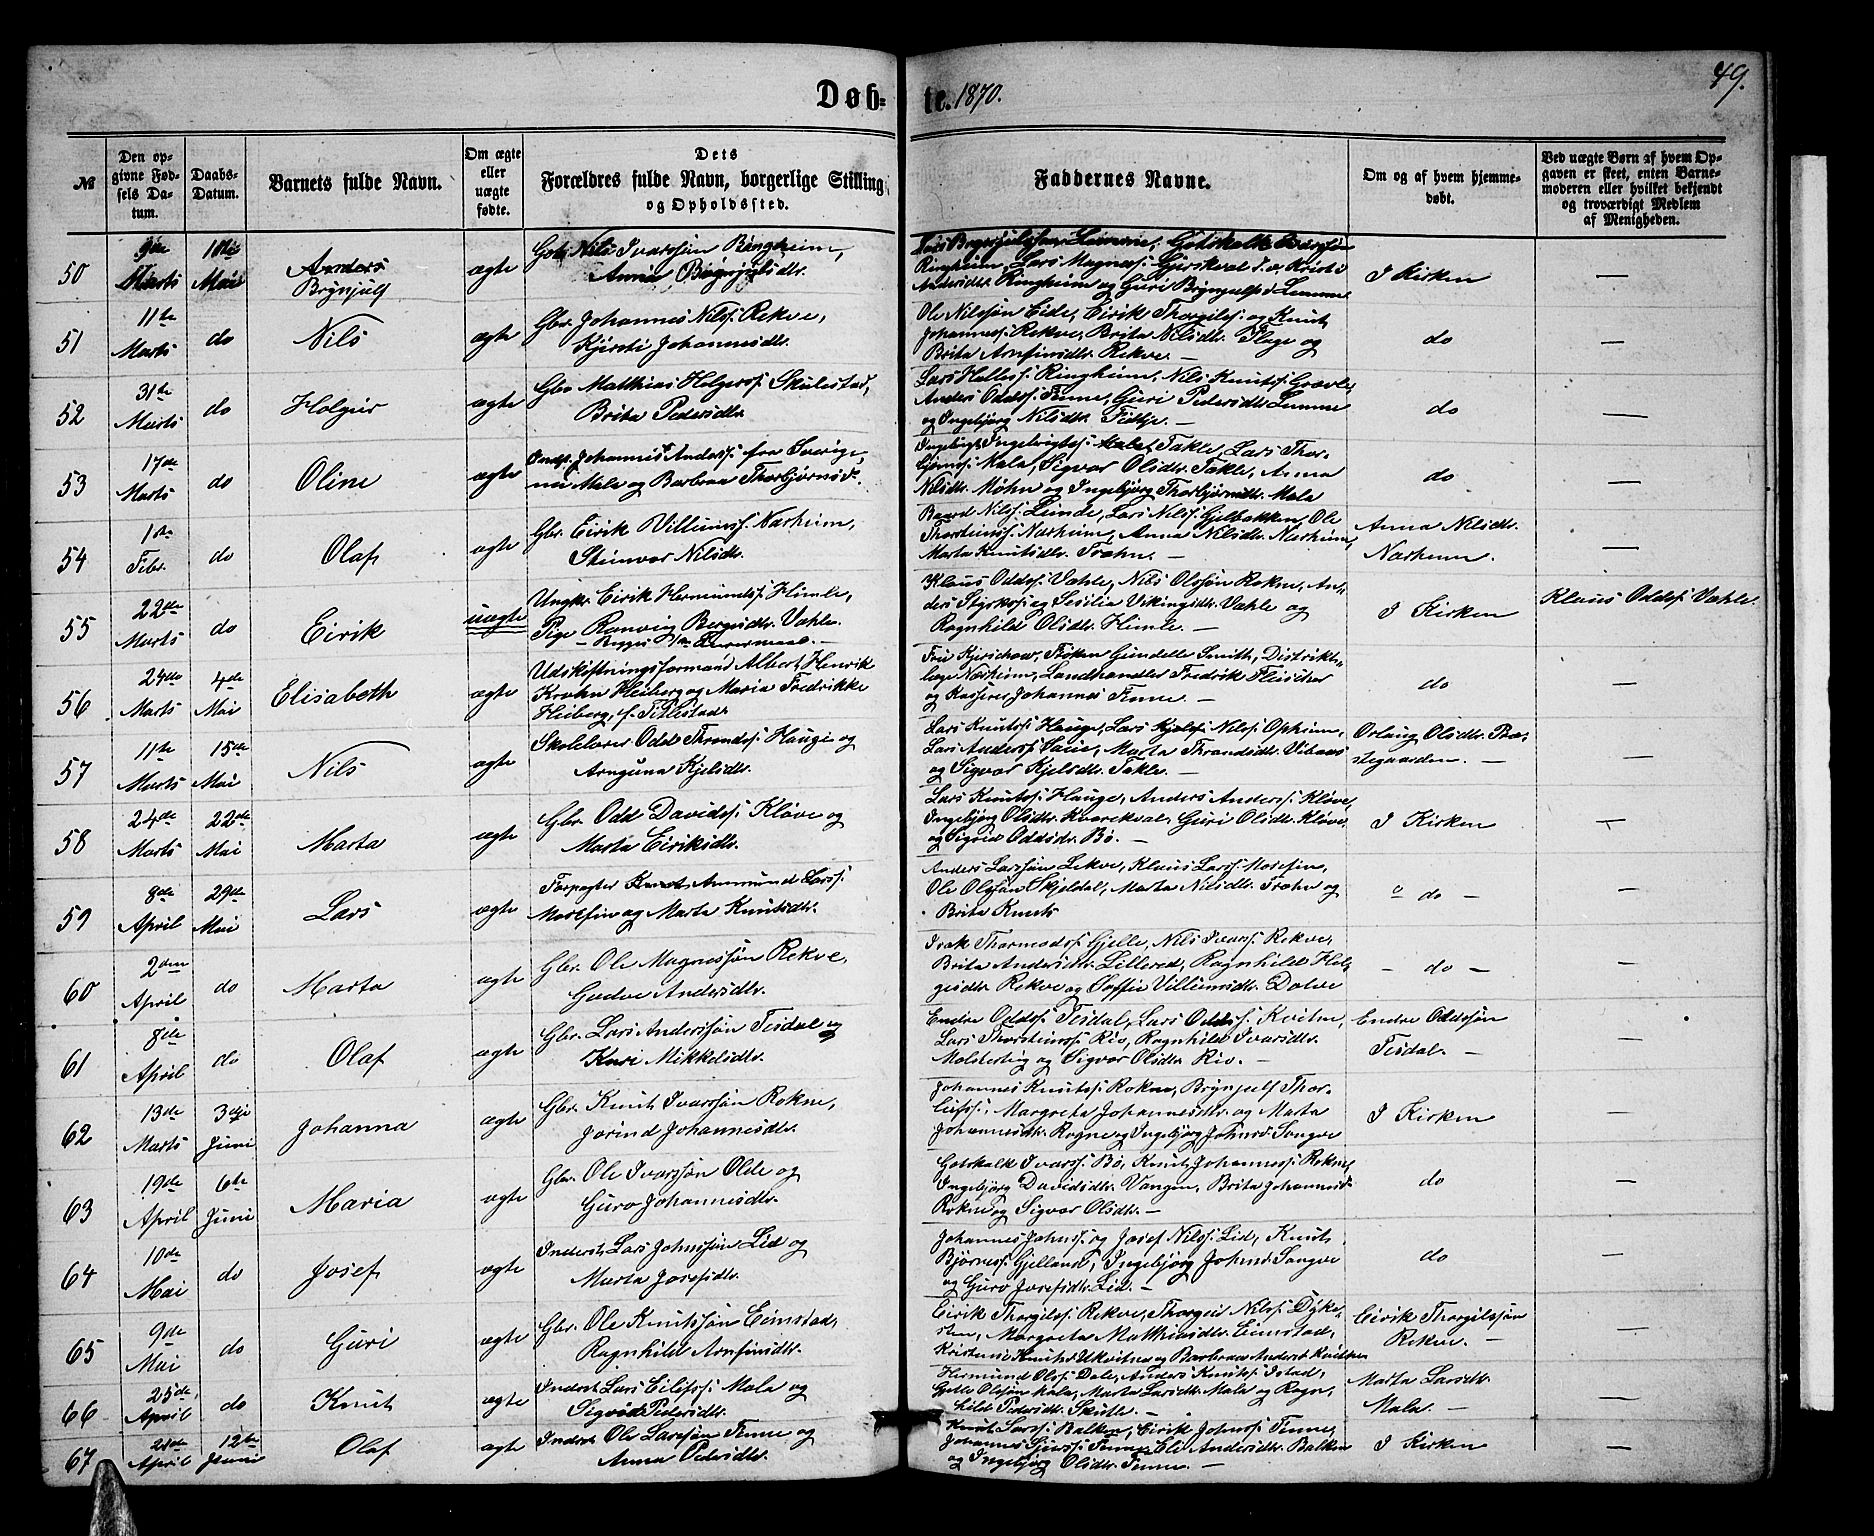 Døb-
te. 1870.
49.
№
Den op-
givne Fød-
sels Da-
tum.
Daabs-
Datum.
Barnets fulde Navn.
Om ægte
eller
uægte
fødte.
Dets
Forældres fulde Navn, borgerlige Stilling
og Opholdssted.
Faddernes Navne.
Om og af hvem hjemme-
døbt.
Ved uægte Børn af hvem Op-
gaven er skeet, enten Barne-
moderen eller hvilket bekjendt
og troværdigt Medlem
af Menigheden.
50
9de
Marts
Mai
Anders
Brynjulf
ægte
Gbr. Nils Ivarssøn Ringheim,
Anna Brynjulsdtr.
Gotskalk Ivarssøn
Ringheim, Lars Magness. Gjerskval
Andersdtr. Ringheim og Guri
I Kirken
—
51
11te
Marts
do
Nils
ægte
Gbr. Johannes Nilss. Rekve,
Kjersti Johannesdtr.
Ole Nilssøn Eide, Eirik Thorgilss. og Knut
Johanness. Rekve, Brita Nilsdtr. Flage og
Brita Arnfinsdtr. Rekve. —
do
—
52
31te
Marts
do
Holger
ægte
Gbr. Matthias Holgerss. Skulestad,
Brita Pedersdtr.
Lars Halless. Ringheim, Nils Knutss. Grovle,
Anders Oddss. Finne, Guri Pedersdtr. Lemme
og Ingebjørg Nilsdtr.
do
—
53
17de
Marts
do
Oline
ægte
Inds. Johannes Anderss. fra Sverige,
Male og Barbraa Thorbjørnsd.
Takle, Lars Thor-
bjørnss. Male, Sigvor Olsdtr. Takle, Anna
Nilsdtr. Møhn og Ingebjørg Thorbjørnsdtr. Male
do
—
54
1ste
Febr.
do
Olaf
ægte
Gbr. Eirik Villumss. Nærheim,
Steinvor Nilsdtr.
Baard Nilss. Lunde, Lars Nilss. Gjelbakken, Ole
Thorsteinss. Nærheim, Anna Nilsdtr. Nærheim,
Marta Knutsdtr. Træhn. —
Anna Nilsdtr.
Nærheim.
—
55
22de
Marts
do
Eirik
uægte
Ungkr. Eirik Hermundss. Himle,
Pige Ranveig Bergesdtr. Væhle.
— Begges 1ste Leiermaal. —
Klaus Oddss. Væhle, Nils Olssøn Rokne, An-
ders Styrkss. og Sesilia Vikingsdtr. Væhle og
Ragnhild Olsdtr. Himle. —
I Kirken
Klaus Oddss. Væhle.
56
24de
Marts
4de
Mai
Elisabeth
ægte
Udskiftningsformand Albert Henrik
Krohn Heiberg og Maria Fredrikke
Heiberg, f. Titlestad.
Fru Kjerschow, Frøken Gundelle Smith, Distrikts-
læge Nærheim, Landhandler Fredrik Fleischer
og Kasserer Johannes Finne. —
do
—
57
11te
Marts
15de
Mai
Nils
ægte
Skolelærer Odd Throndss. Hauge og
Arnguna Kjelsdtr.
Lars Knutss. Hauge, Lars Kjelss. Nilss. Opheim,
Lars Anderss. Væie, Marta Throndsdtr.
og Sigvor Kjelsdtr. Takle. —
Orlaug Olsdtr. Præ-
stegaarden. —
—
58
24de
Marts
22de
Mai
Marta
ægte
Gbr. Odd Davidss. Kløve og
Marta Eiriksdtr.
Lars Knutss. Hauge, Anders Anderss. Kløve,
Ingebjørg Olsdtr. Kvarekval, Guri Olsdtr. Kløve
og Sigrid Oddsdtr. Bø. —
I Kirken
—
59
8de
April
29de
Mai
Lars
ægte
Forpagter Ammund Larss.
Mosefin og Marta Knutsdtr.
Anders Larssøn Lekve, Klaus Larss. Mosefin,
Ole Olssøn Skjeldal, Marta Nilsdtr. Træhn og
Brita Knuts
do —
—
60
2den
April
do
Marta
ægte
Gbr. Ole Magnessøn Rekve,
Gudve Andersdtr.
Isak Thormodss. Gjelle, Nils Ivarss. Rekve,
Brita Andersdtr. Lillered, Ragnhild Hel-
gesdtr. Rekve og Sophie Villumsdtr. Dolve
— do —
—
61
8de
April
do
Olaf
ægte
Gbr. Lars Anderssøn Tesdal og
Kari Mikkelsdtr.
Endre Oddss. Tesdal, Lars Oddss. Kvitne,
Lars Thorsteinss. Rio, Ragnhild Ivarsdtr.
Molsterteig og Sigvor Olsdtr. Rio. —
Endre Oddssøn
Tesdal. —
—
62
13de
Marts
3die
Juni
Johanna
ægte
Gbr. Knut Ivarssøn Rokne,
Jorind Johannesdtr.
Johannes Knutss. Rokne, Brynjulf Thor-
leifss., Margreta Johannesdtr. og Marta
Johannesdtr. Rogne og Ingebjørg Johnsd. Songve
I Kirken
—
63
19de
April
6te
Juni
Maria
ægte
Gbr. Ole Ivarssøn Olde og
Guro Johannesdtr.
Gotskalk Ivarss. Bø, Knut Johanness. Rokne,
Ingebjørg Davidsdtr. Vangen, Brita Johannesd.
Rokne og Sigvor Olsdtr. —
do
—
64
10de
Mai
do
Josef
ægte
Inderst Lars Johnssøn Lid og
Marta Josefsdtr.
Johannes Johnss. og Josef Nilss. Lid, Knut
Bjørness. Gjelland, Ingebjørg Johnsd. Songve
og Guro Josefsdtr. Lid. —
do
—
65
9de
Mai
do
Guri
ægte
Gbr. Ole Knutssøn Eimstad,
Ragnhild Arnfinsdtr.
Eirik Thorgilss. Rekve, Thorgeid Nilss. Dyke-
sten, Margreta Matthiasdtr. Eimstad,
Kristense Knutsd. Ukvitne og Barbraa Andersd. Kvitne
Eirik Thorgilssøn
Rekve. —
—
66
25de
April
do
Knut
ægte
Inderst Lars Eilifss. Male og
Sigvor Pedersdtr.
Hermund Olss. Dale, Anders Knutss. Istad,
Gjelle Olssøn Male, Marta Larsdtr. Male og Ragn-
hild Pedersdtr. Skutle. —
Marta Larsdtr.
Male. —
—
67
April
12te
Juni
Olaf
ægte
Inderst Ole Larssøn Finne og
Anna Pedersdtr.
Knut Larss. Balken, Eirik Johnss. Finne,
Johannes Sjurss. Finne, Eli Andersdtr. Balken
og Ingebjørg Olsdtr. Finne. —
I Kirken
—